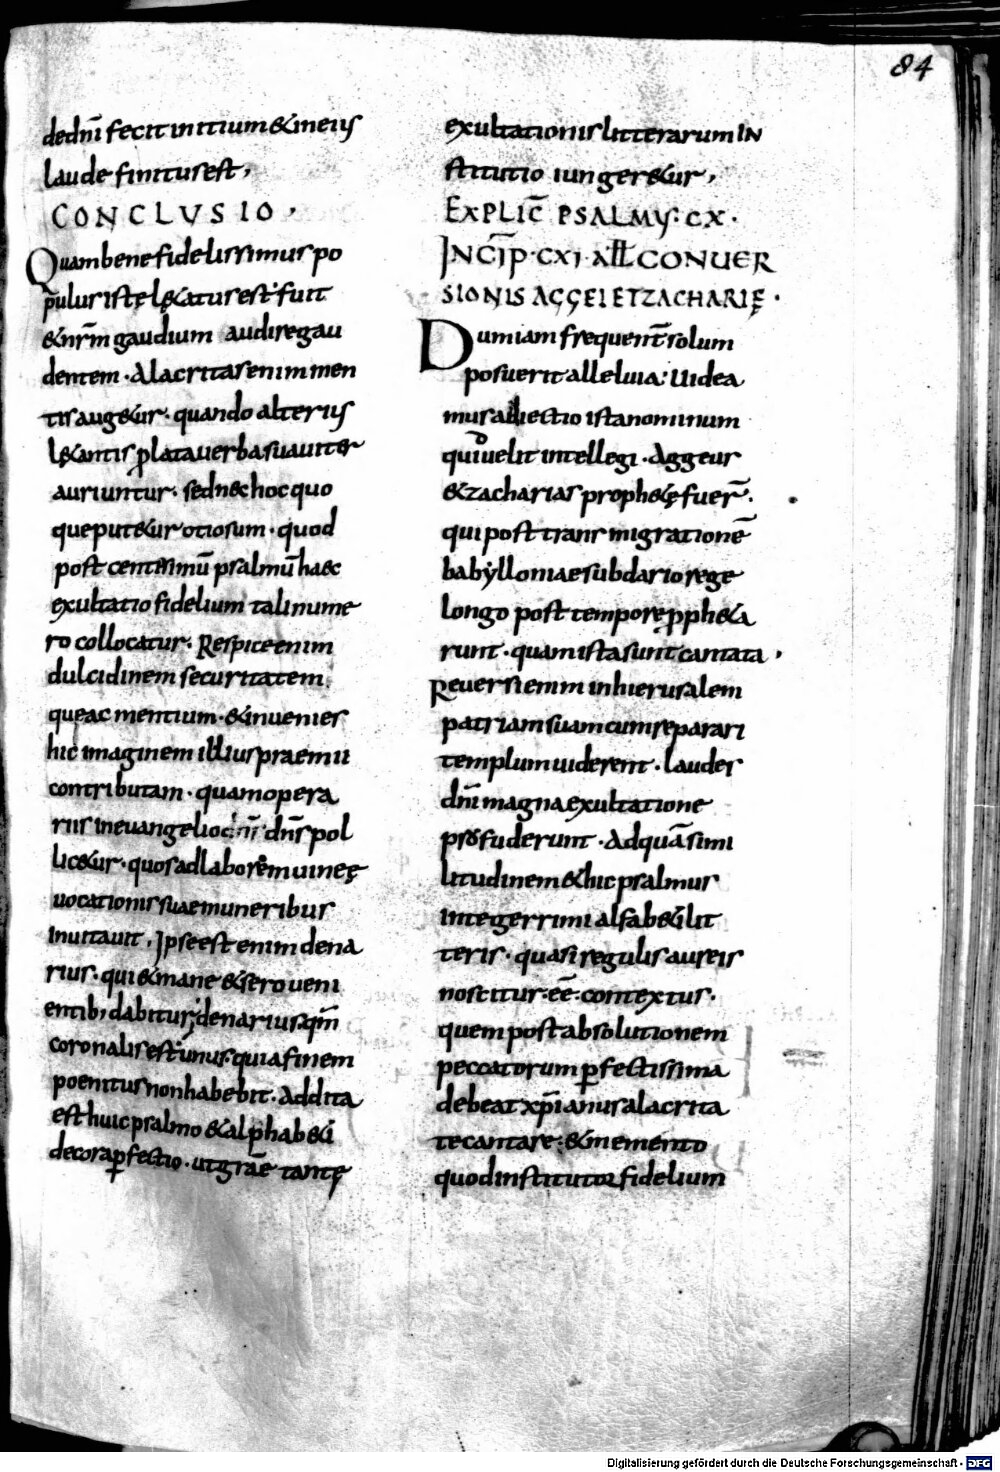 84
de dn̄i fecit initium & in eius
laude finitus est,
CONCLVSIO,
Quam bene fidelissimus po
pulus iste lętatus est. fuit
& nr̄m gaudium audire gau
dentem. Alacritas enim men
tis aug&ur. quando alterius
lętantis plata uerba suauiter
auriuntur. sed nec hoc quo
que put&ur otiosum. quod
post centesimū psalmū haec
exultatio fidelium tali nume
ro collocatur. Respice enim
dulcidinem securitatem
queac mentium. & inuenies
hic imaginem illius praemii
contributam. quam opera
riis in euangelio dn̄s pol
lic&ur. quos ad laborem uineę
uocationis suae muneribus
inuitauit. Ipse est enim dena
rius. qui & mane & sero ueni
entib; dabitur; denarius. qm̄
coronalis est. unus. quia finem
poenitus non habebit. Addita
est huic psalmo & alphab&i
decora pfectio. ut grāe tantę
exultationis litterarum IN
stitutio iunger&ur,
EXPLIC̄ PSALMUS. CX.
INCIP̄. CXI. ALL CONUER
SIONIS AGGEI ET ZACHARIĘ.
Dum iam frequent̄ solum
posuerit alleluia. Uidea
mus adiectio ista nominum
quid uelit intellegi. Aggeus
& zacharias proph&ę fuer̄.
qui post transmigrationē
babylloniae sub dario rege
longo post tempore pph&a
runt. quam ista sunt cantata,
Reuersi enim in hierusalem
patriam suam cum reparari
templum uiderent. laudes
dn̄i magna exultatione
profuderunt. Ad quā simi
litudinem & hic psalmus
integerrimi alfab&i lit
teris. quasi regulis aureis
noscitur. eē. contextus.
quem post absolutionem
peccatorum pfectissima
debeat xp̄ianus alacrita
te cantare. & memento
quod institutor fidelium
Digitalisierung gefördert durch die Deutsche Forschungsgemeinschaft - DFG